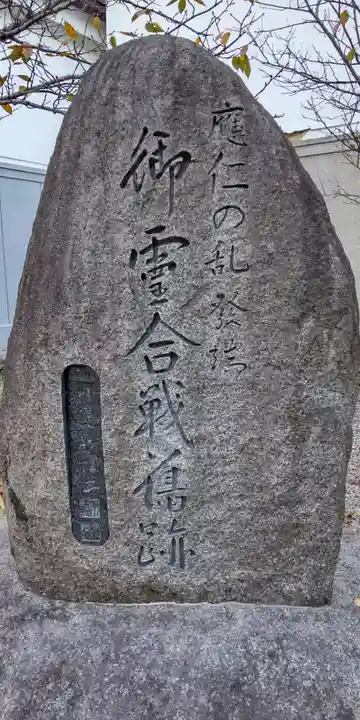 應仁の乱發端
御靈合戰舊跡